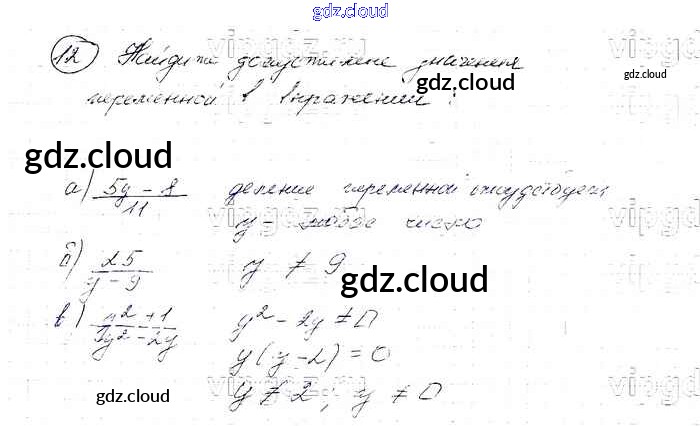 gdz.cloud
12 Найдите допустимые значения
gdz.cloud
переменной в выражении:
gdz.cloud
gdz.cloud
а) (5y - 8)/11 деление переменной отсутствует,
y - любое число
б) 25/(y - 9) y ≠ 9
gdz.cloud
в) (y² + 1)/(y² - 2y) y² - 2y ≠ 0
y(y - 2) = 0
gdz.cloud
gdz.cloud
y ≠ 2; y ≠ 0